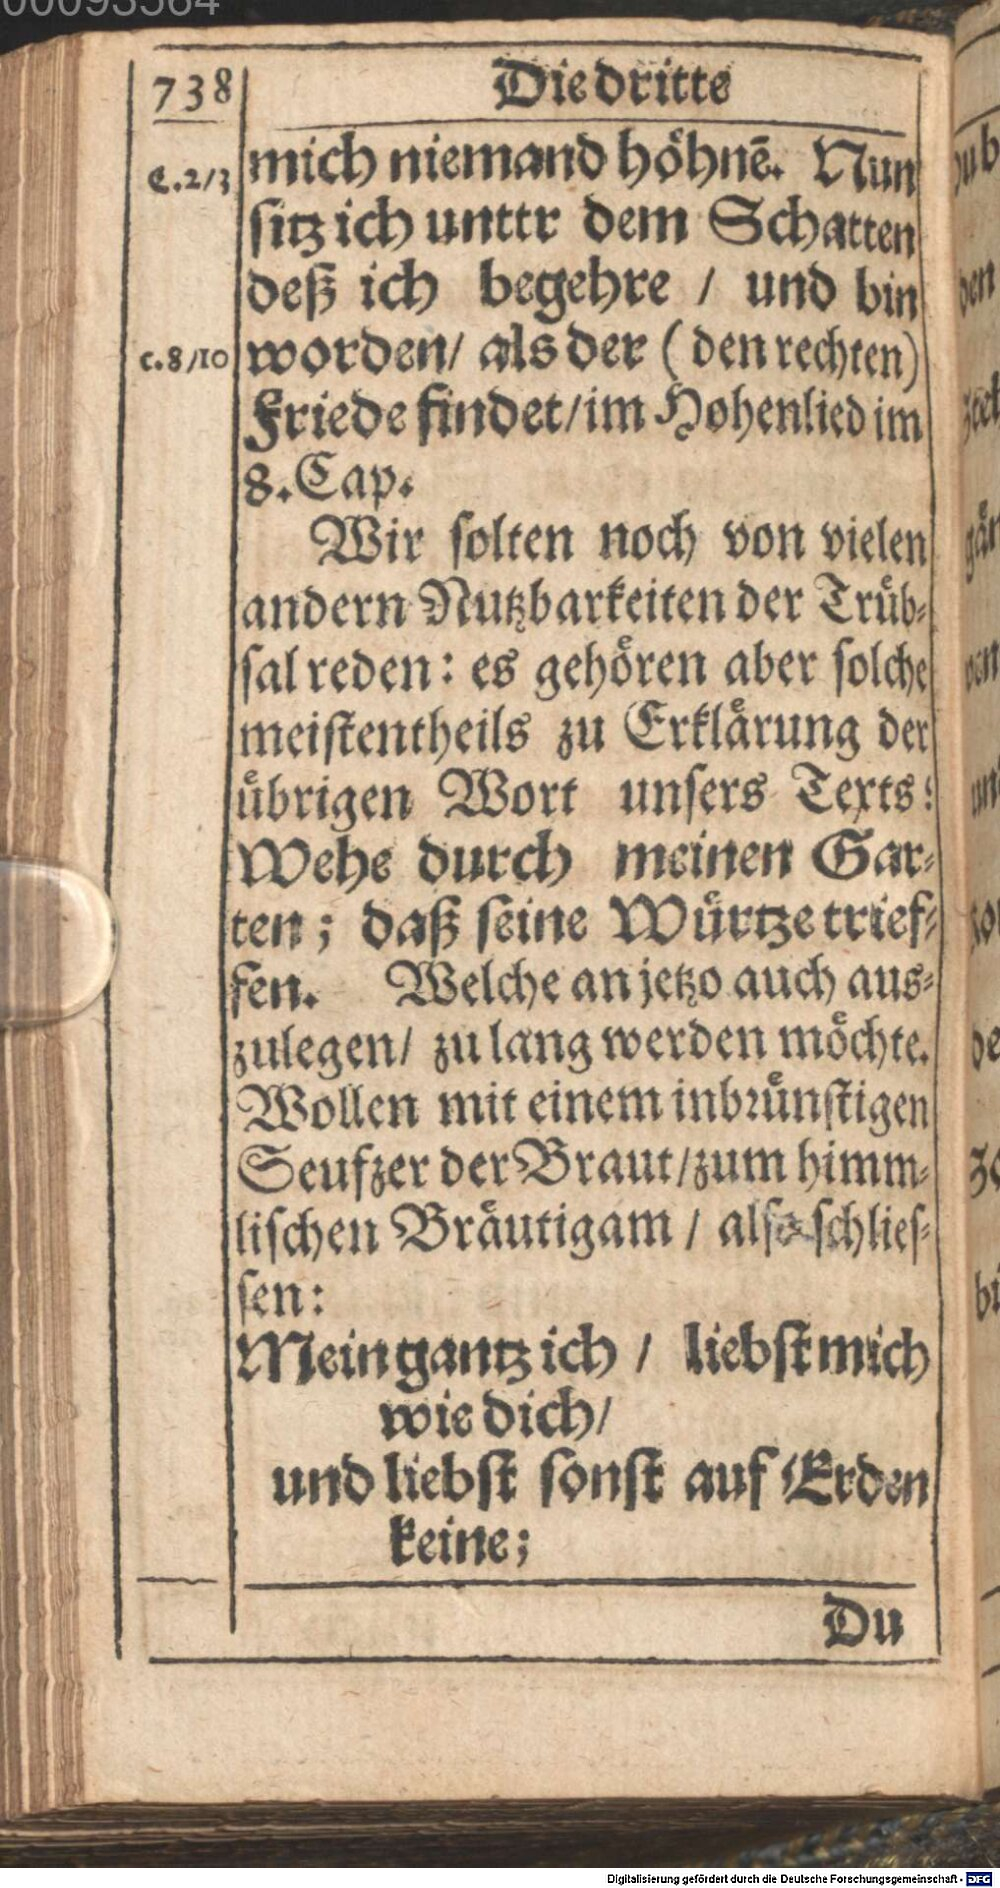 00093564
738
Die dritte
C.2/3
mich niemand hoͤhnē. Nun
ſitz ich unttr dem Schatten
deß ich begehre / und bin
c.8/10
worden/ als der (den rechten)
Friede findet/im Hohenlied im
8. Cap.
Wir ſolten noch von vielen
andern Nutzbarkeiten der Truͤb-
ſal reden: es gehoͤren aber ſolche
meiſtentheils zu Erklaͤrung der
uͤbrigen Wort unſers Texts:
Wehe durch meinen Gar-
ten; daß ſeine Wuͤrtze trief-
fen. Welche an jetzo auch aus-
zulegen/ zu lang werden moͤchte.
Wollen mit einem inbꝛuͤnſtigen
Seufzer der Braut/zum himm-
liſchen Braͤutigam / alſo ſchlieſ-
ſen:
Mein gantz ich / liebſt mich
wie dich/
und liebſt ſonſt auf Erden
keine;
Du
Digitalisierung gefördert durch die Deutsche Forschungsgemeinschaft - DFG